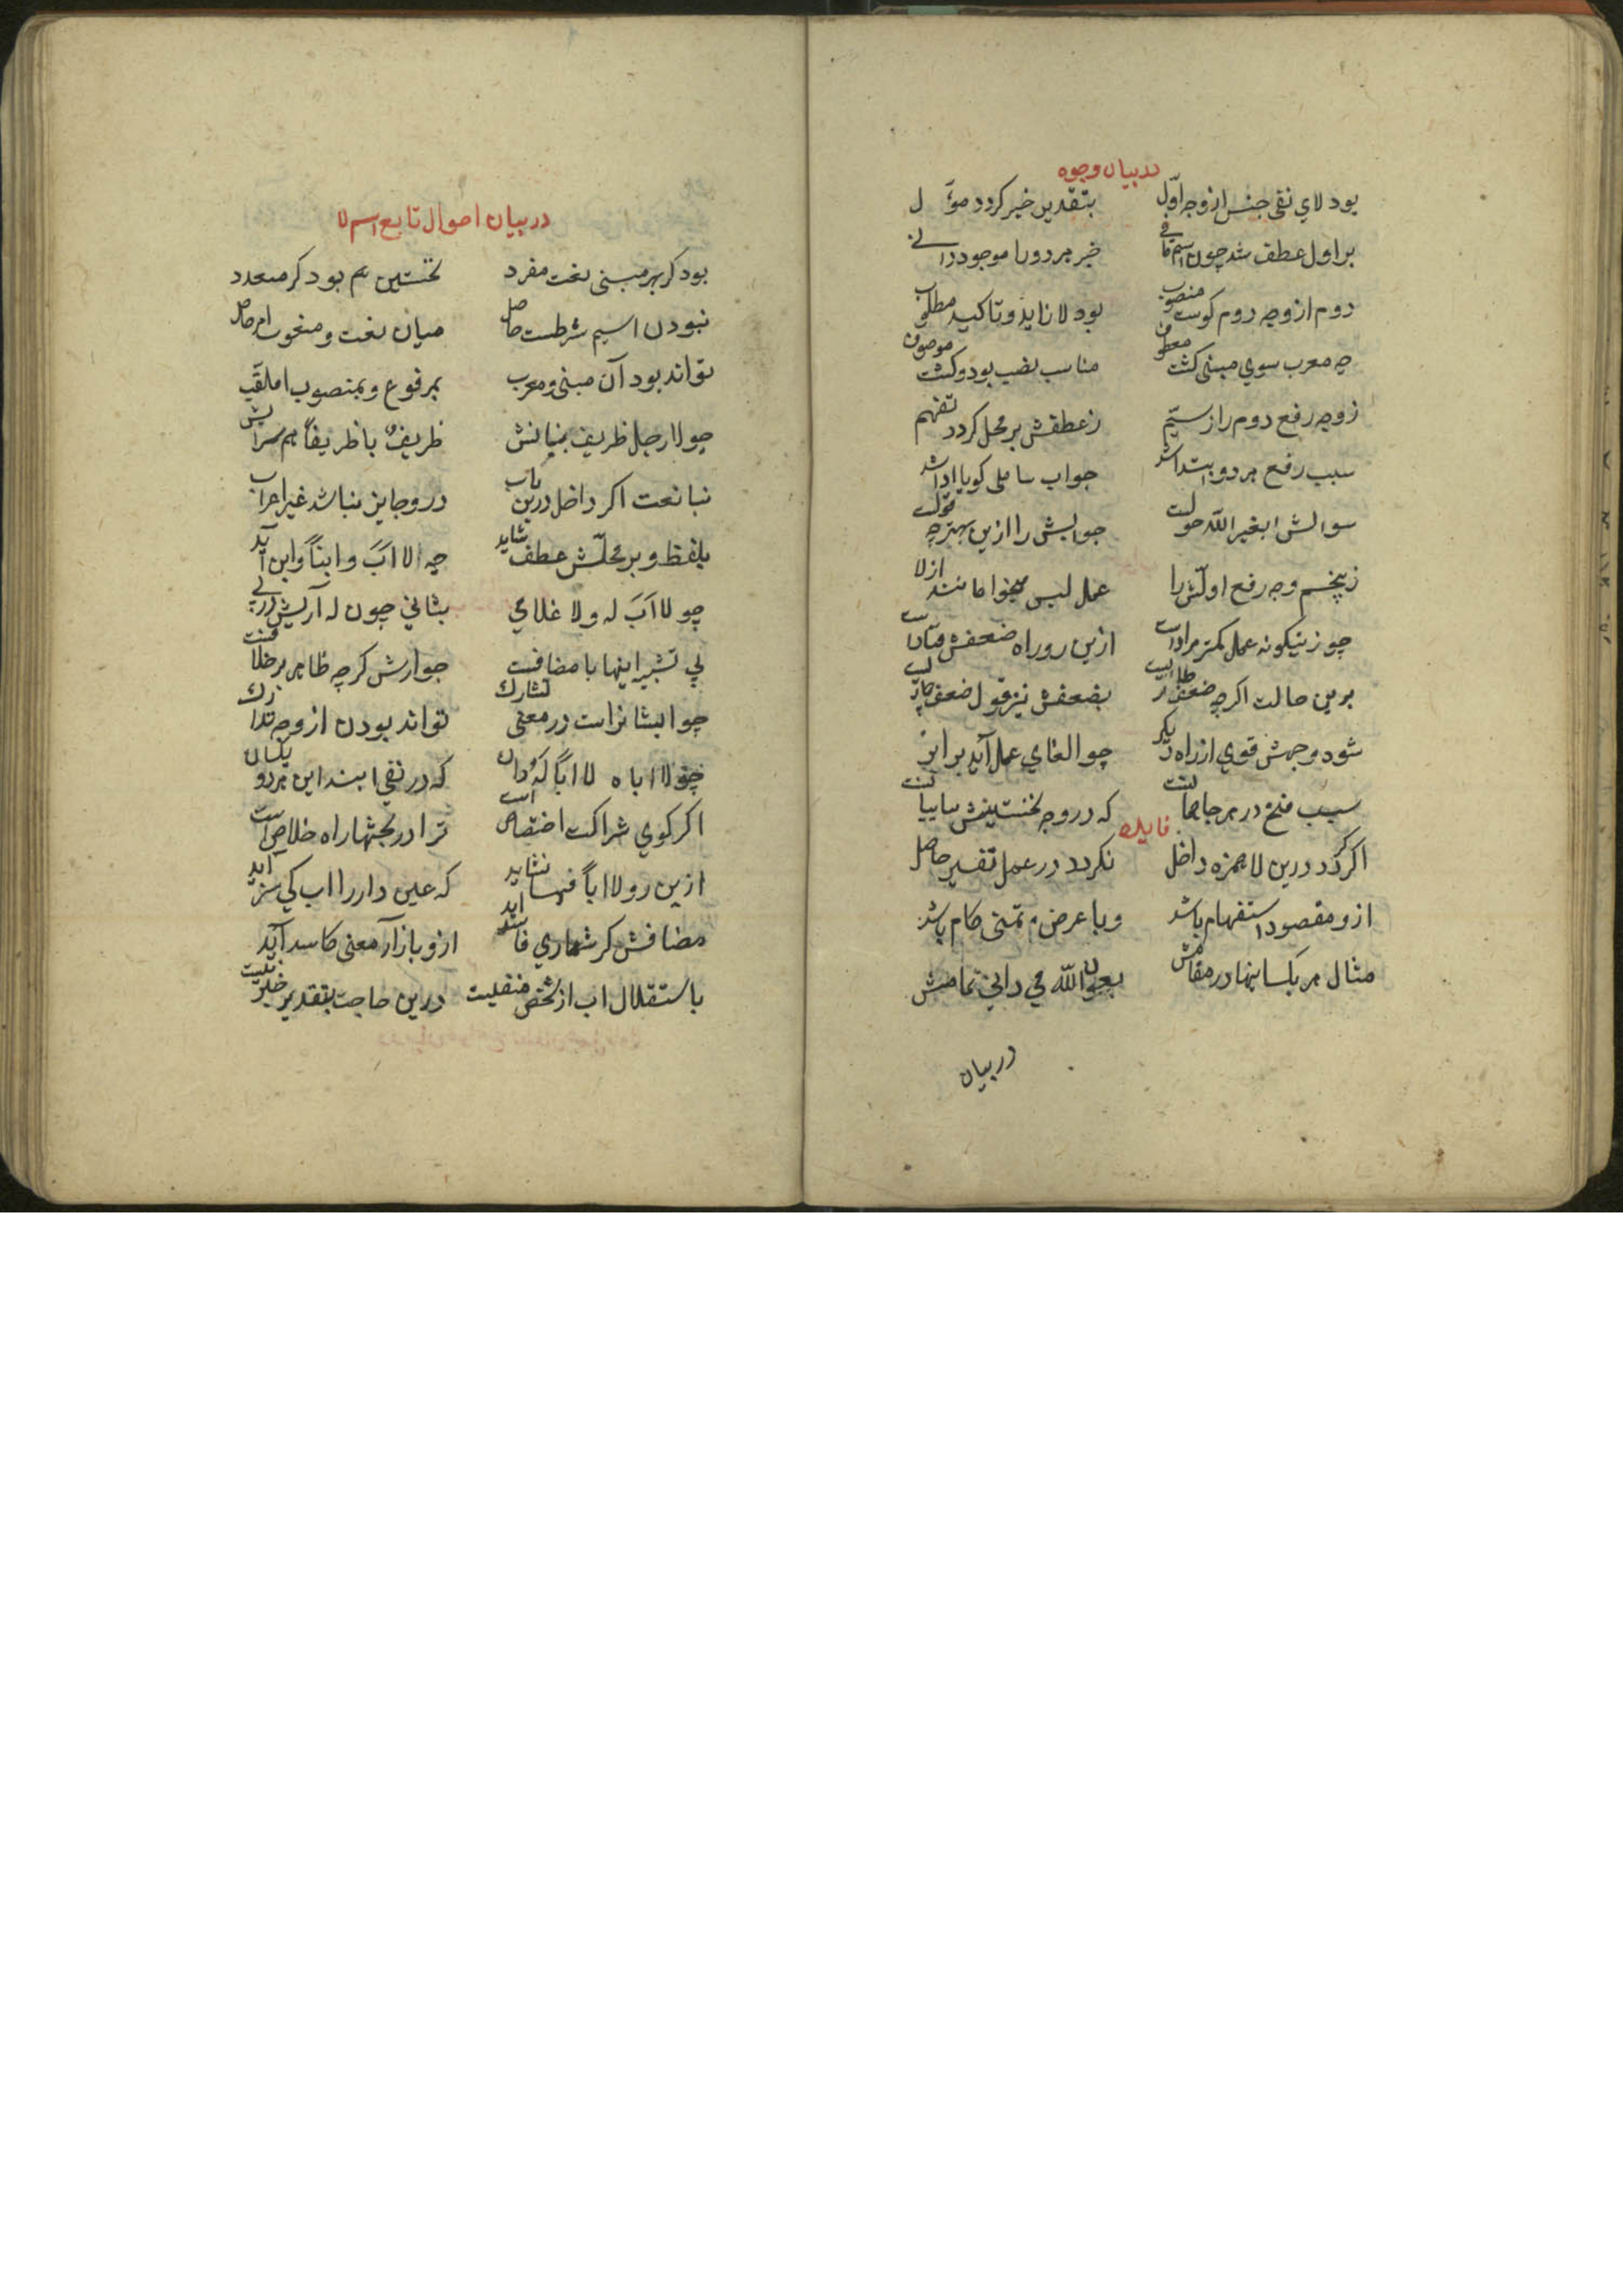 در بیان وجوه
بود لاي نفی جنس از وجه اوّل بتقدیر خبر کردد مؤَل
بر اول عطف شد چون اسم خبر هر دورا موجود دانے
دوم از وجه دوم کوست منصوب بود لا زاید و تاکید مطلوب
چه معرب سوي مبنی کشت معطوف مناسب نصب بود و کشت موصوف
ز وجه رفع دوم را ز سیّم ز عطفش بر محل کردد تفهم
سبب رفع هر دو ابتدا شد جواب سا ملی کویا ادا شد
سوالش ابغیر اللّه حولت جوابش را ازین بهتر چه قولت
ز پنجم وجه رفع اولّش را عمل لیس میخوا مانند از لا
چو زینکونه عمل کمتر مرادست ازین رو راه ضعفش فتادست
برین حالت اکرچه ضعف بضعفش نیز قول ضعف
شود وجهش قوي از راه دیکر چو الغاي عمل آید برابر
سبب فتح در هر جا همانست که در وجه نخستینش بیانست
فایده
اکر کردد درین لا همزه داخل نکردد در عمل تغییر حاصل
ازو مقصود استفهام باشد و با عرض و تمنی کام باشد
مثال هر یک اینها در مقامش بعون اللّه می دانی تمامش
در بیان
در بیان احوال تابع اسم لا
بود کر بهر مبنی نعت مفرد نخستین هم بود کر متعدد
نبودن اسیم شرطست حاصل میان نعت و منعوت امر حاصل
تواند بود آن مبنی و معرب بمرفوع و بمنصوب املقب
چو لا رجل ظریف بنیانش ظریفٌ با ظریفاً هم
نبا نعت اکر داخل درین باب درو جایز نباشد غیر اعراب
بلفظ و بر محلّش عطف شاید چه الا اَبَ و ابناً و ابن آید
چو لا اَبَ له ولا غلامي بثاني چون له آریش در پے
پی تشبیه اینها با مضافست جوازش کرچه ظاهر بر خلافست
چو ایشانراست در معنی تشارك تواند بودن از وجه تدارك
چو لا اباه لا اباً له دان که در نفی ابند این هر دو یکسان
اکر کوي شراکت اختصاص است ترا در بحثها راه خلاص است
ازین رو لا اباً فیها نشاید که عین دار را اب کي سزد آید
مضافش کر شماري فاسد اید ازو بازار معنی کاسد آید
باستقلال اب از شخص منفیست درین حاجت بتقدیر خبر نیست